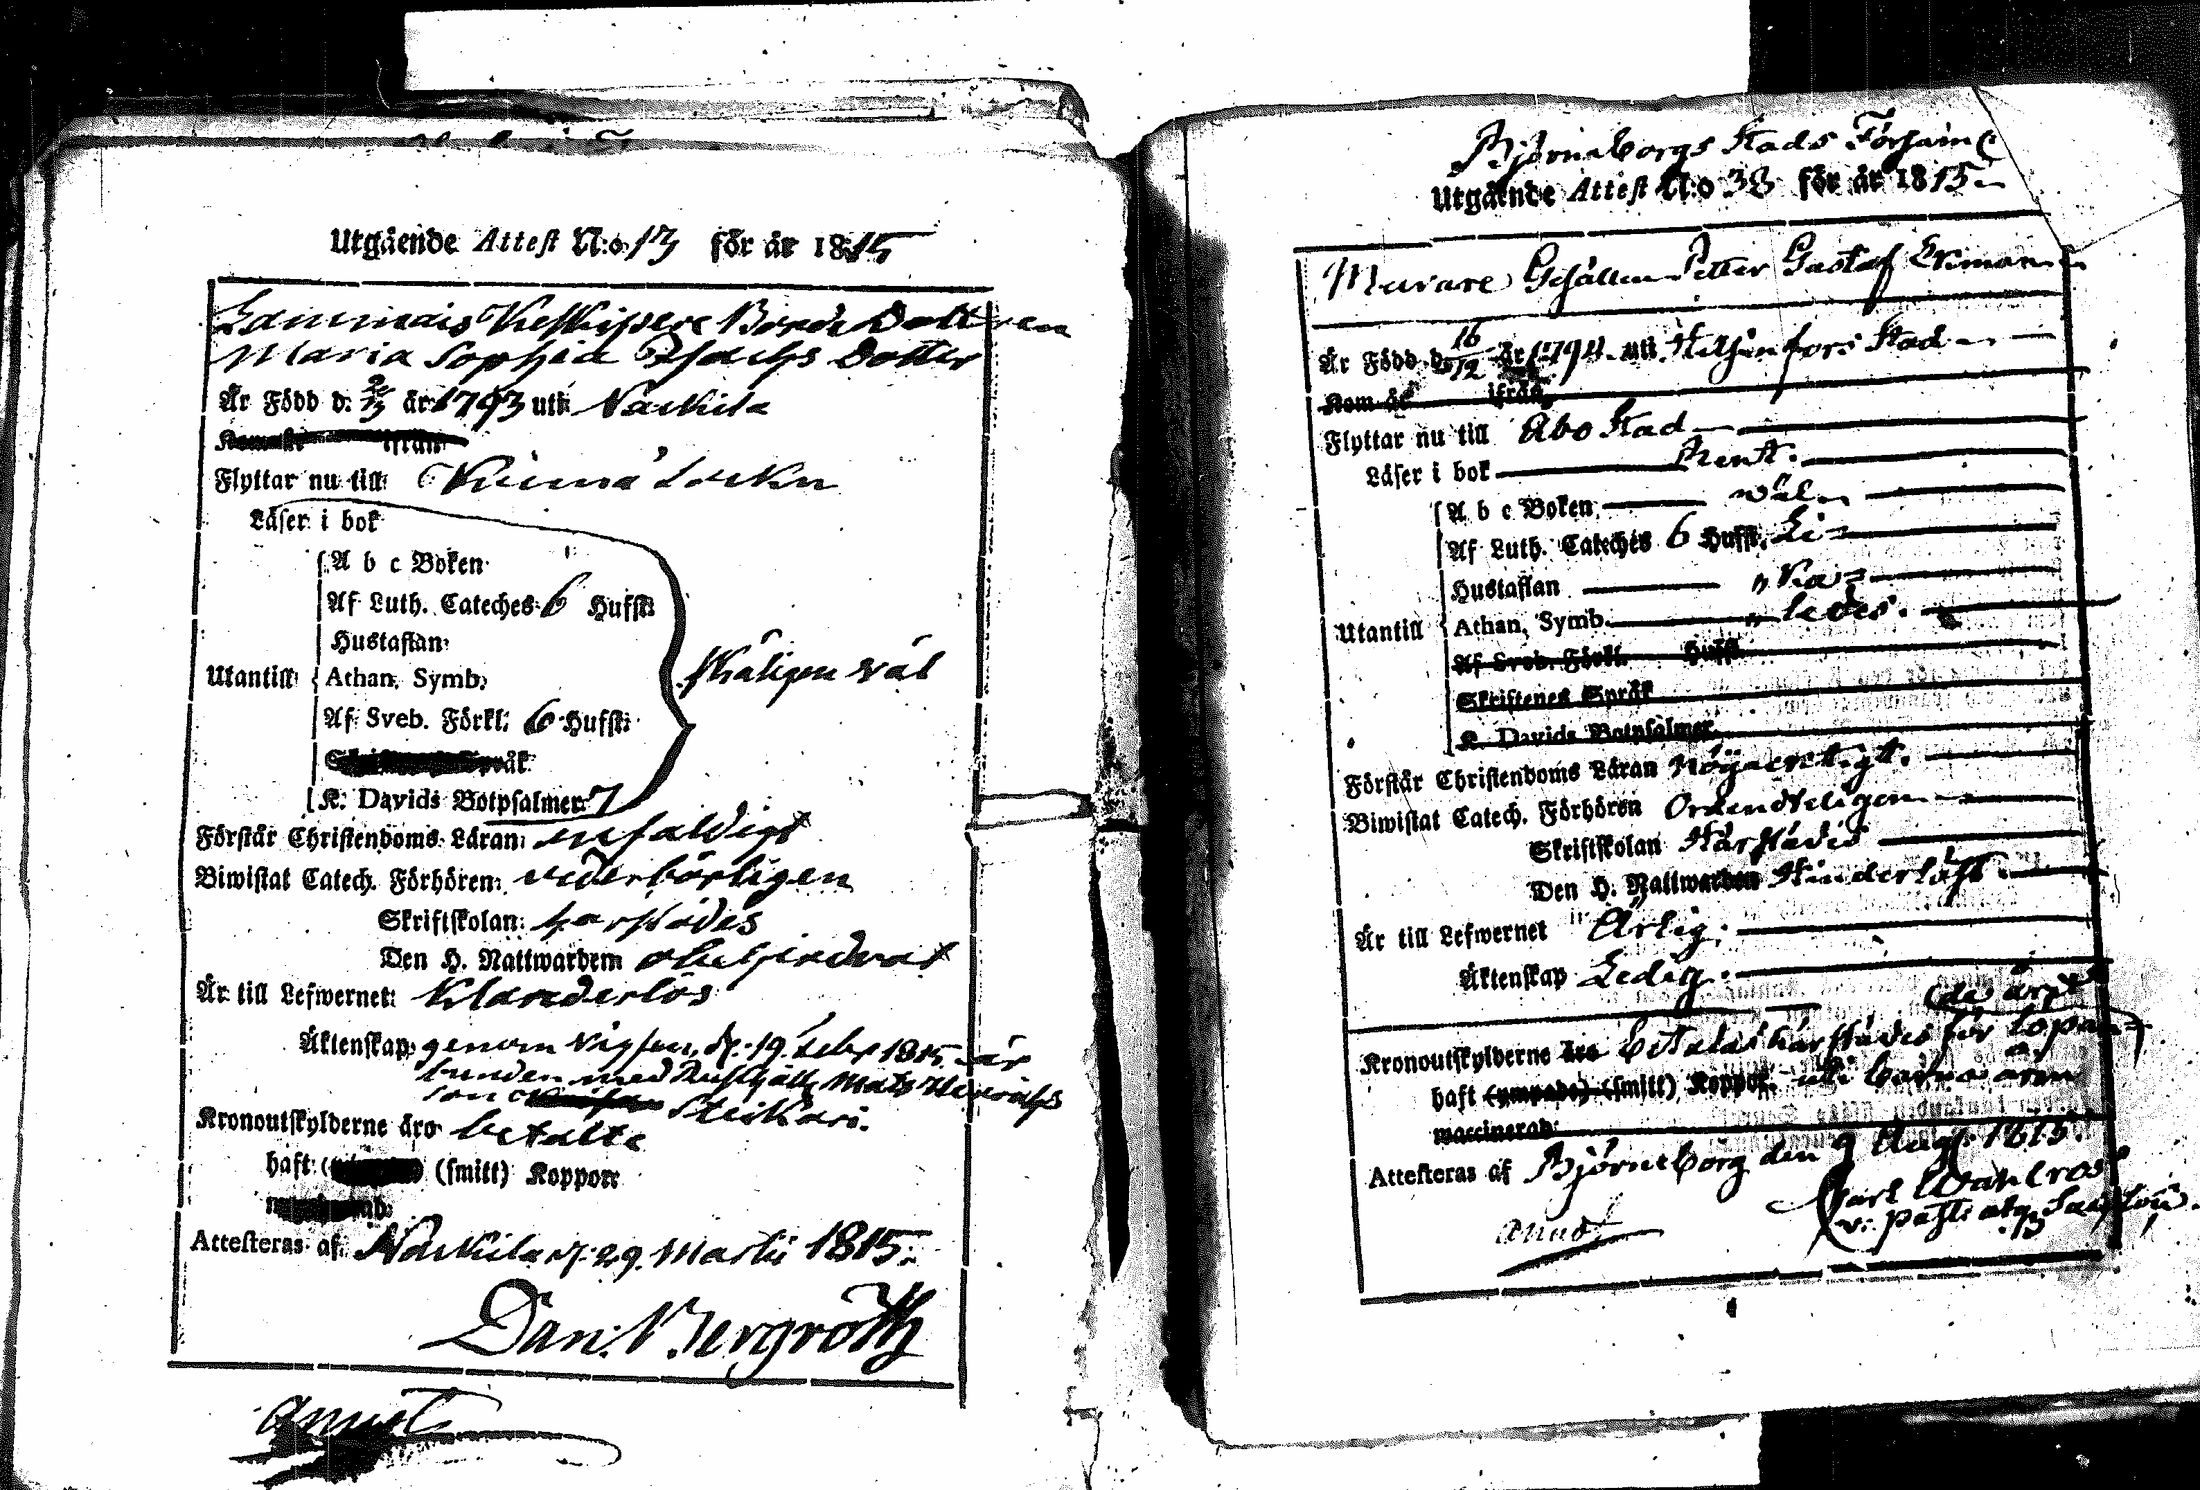 Utgående Attest N:o 13 för år 1815
Lammais Keskisare Bonde Dottren
Maria Sophia Isachs Dotter
Är Född d: år 1793 uti Nackila
Kom år ifrån
Flyttar nu till: Kiuma Sockn
Läser i bok
A b c Boken
Af Luth. Cateches 6 Hufst:
Hustaflan
Utantill: Athan. Symb. skäligen väl
Af Sveb. Förkl: 6 Hufst:
Språk
K. Davids Botpsalmer: 7
Förstår Christendoms Läran: enfaldigt
Biwistat Catech. Förhören: vederbörligen
Skriftskolan: härstädes
Den H. Nattwarden obehindrat
Är till Lefwernet: Klanderlös
Äktenskap: genom Vigsen, d: 19 Febr 1815 är
bunden med Mats Henrichs
son
Kronoutskylderne äro betalte
haft (smitt) Koppor:
Attesteras af: Nackila d: 29 Martii 1815.
Dan: Bergroth
Björneborgs Stads Församl
Utgående Attest N:o 38 för år 1815
Murare Gesällen Petter Gustaf Ekman
Är Född d. 16/12 år 1794 uti Helsinfors Stad
Kom år ifrån
Flyttar nu till Åbo Stad
Läser i bok Rent.
A b c Boken wäl
Af Luth. Cateches 6 Hufst. Li=
Hustaflan " ka=
Utantill Athan. Symb. " ledes.
Af Sveb. Förkl. Hufst.
Skriftenes Språk
K. Davids Botpsalmer
Förstår Christendoms Läran Nöjacktigt.
Biwistat Catech. Förhören Ordendteligen
Skriftskolan Härstädes
Den H. Nattwarden Hinderlöst
Är till Lefwernet Ärlig.
Äktenskap Ledig.
Kronoutskylderne äro Betalas härstädes för
haft (ympade) (smitt) Koppor. uti barna åren
waccinerad
Attesteras af Björneborg den 9 Aug: 1815.
Carl Wahlroos